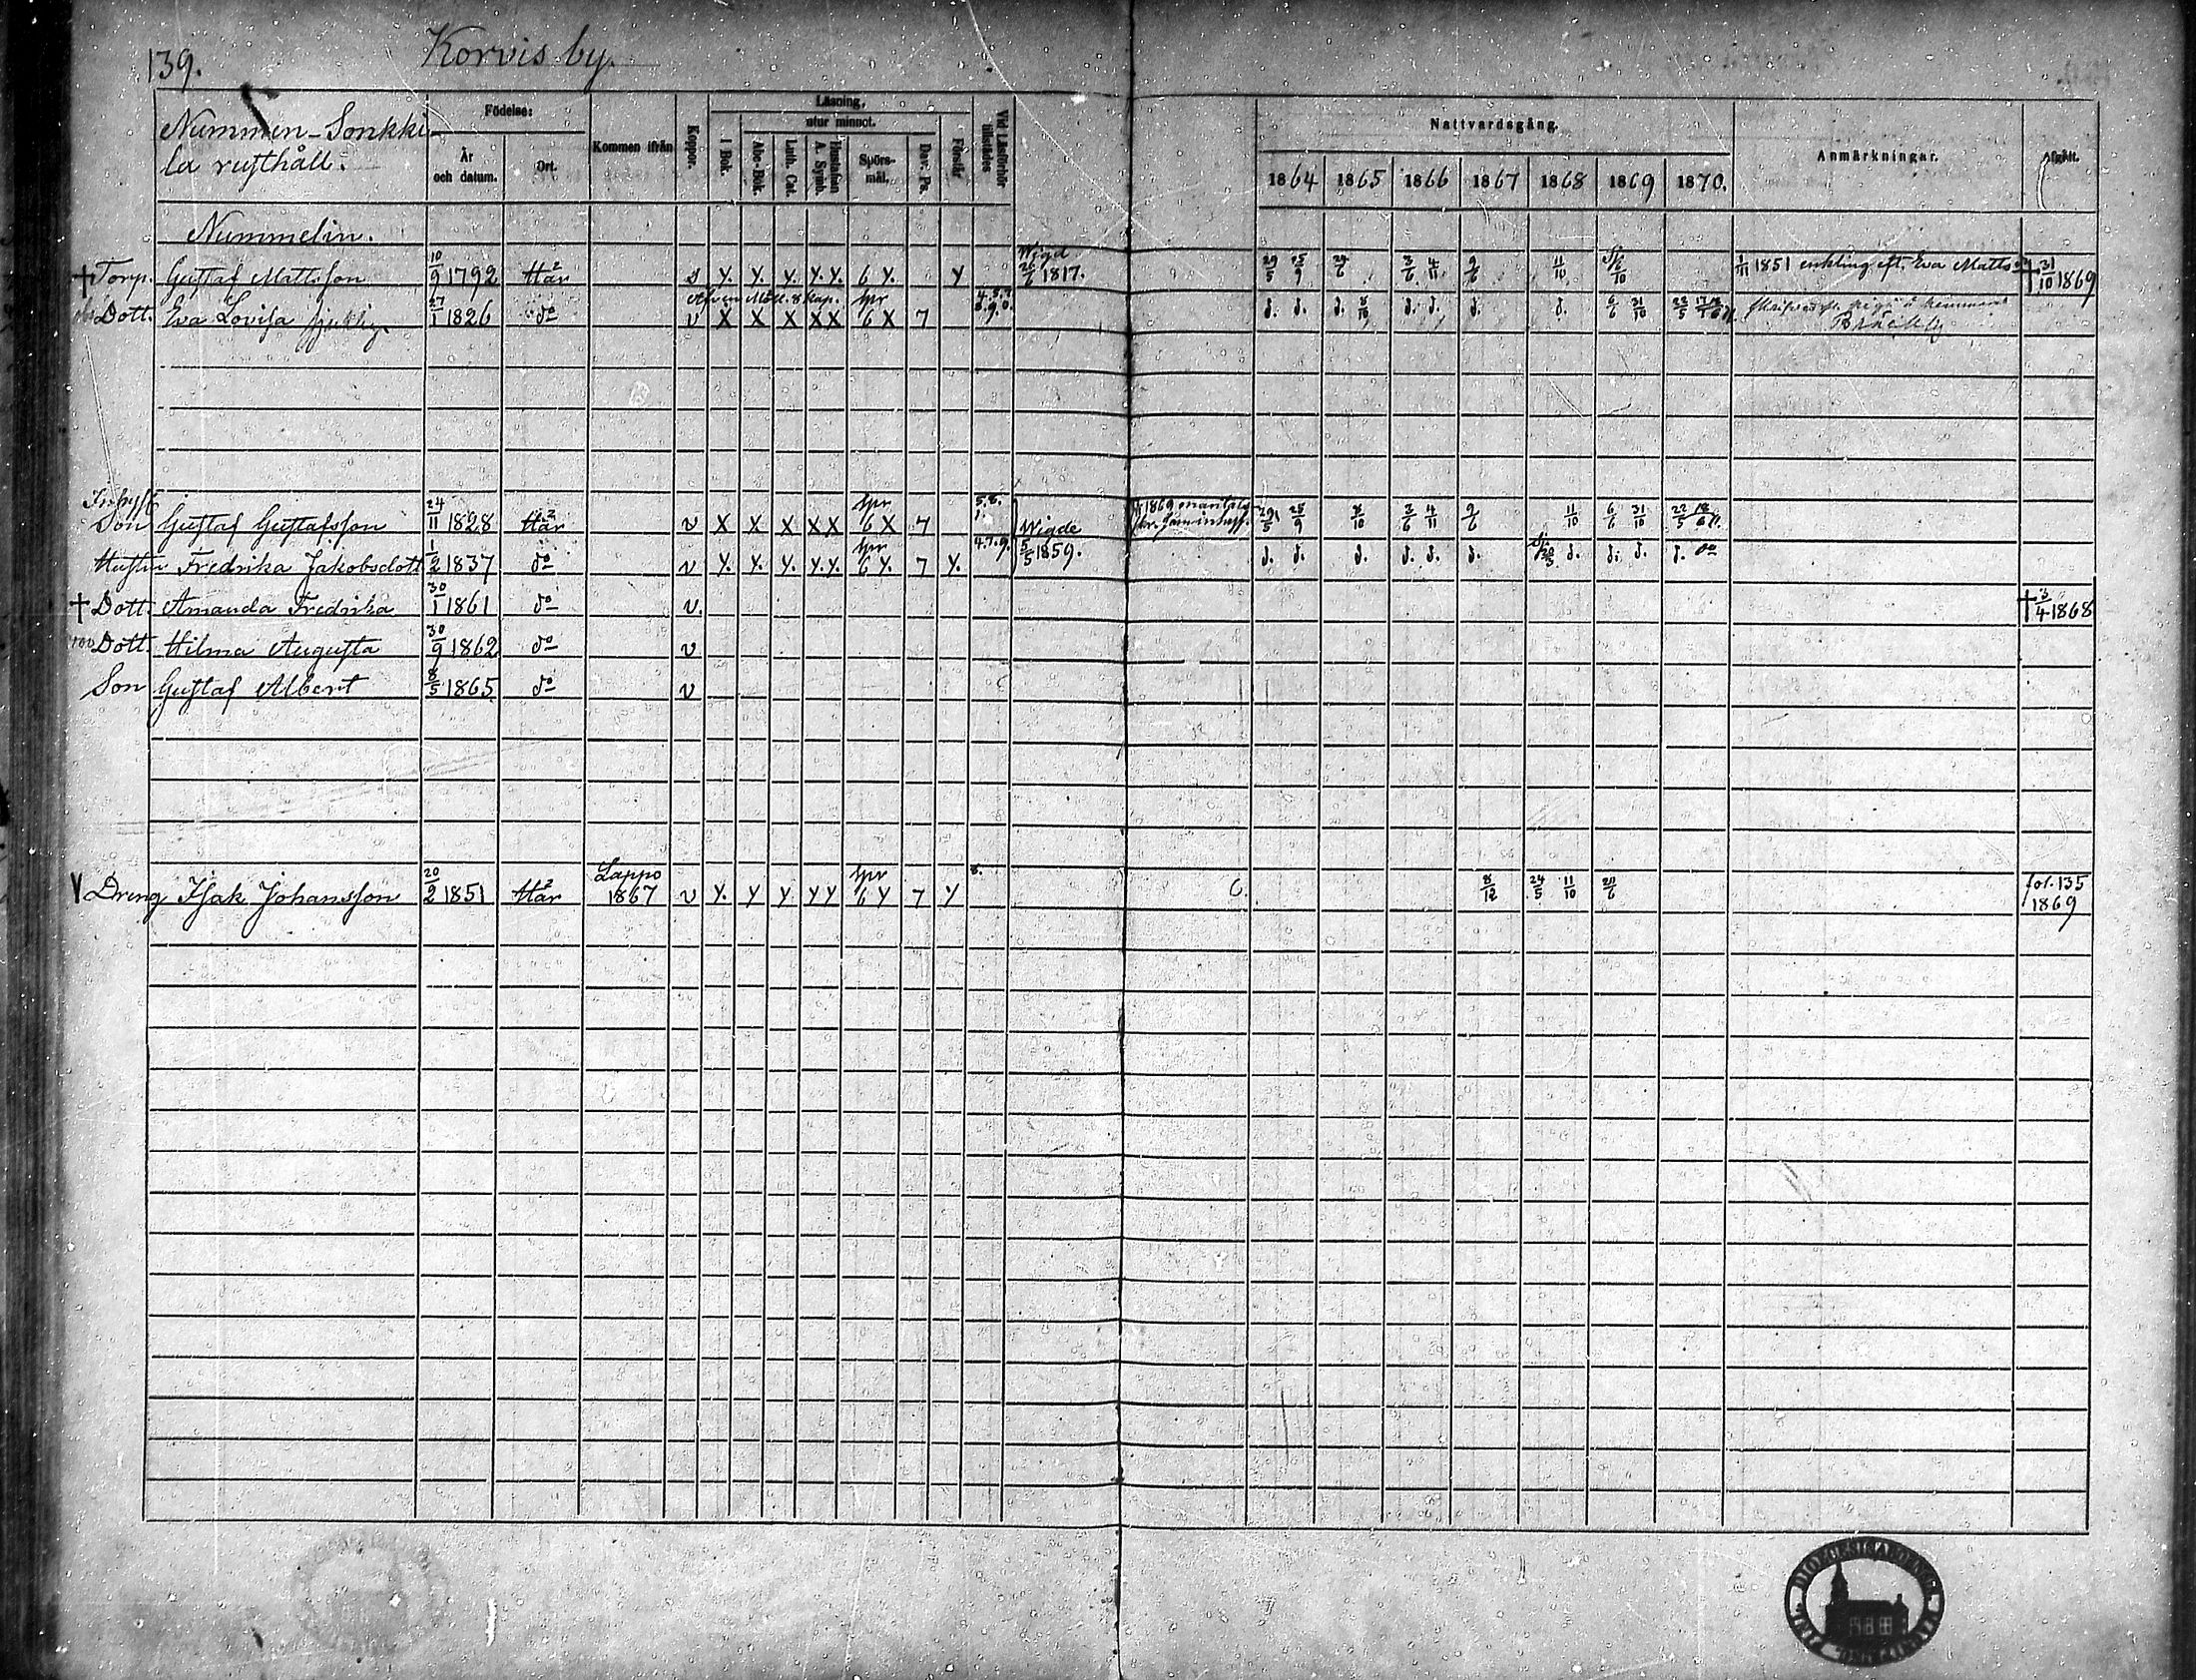 139.
Korvis by.
Nummen-Sonkki-
la rusthåll.
Födelse:
År och datum.
Ort.
Kommen ifrån
Koppor.
Läsning,
utur minnet.
I Bok.
Abc-Bok.
Luth. Cat.
Hustaflan A. Symb.
Spörs-mål.
Dav. Ps.
Förstår
Vid Läsförhör tillstädes
Nattvardsgång.
1864 1865 1866 1867 1868 1869 1870.
Anmärkningar.
Afgått.
Nummelin.
† Torp. Gustaf Mattsson 10/9 1792 Här s y. y. y. y. y. 6 y. y Wigd 26/7 1817. 29/5 25/9 24/6 3/6 4/11 9/6 11/10 1/11 1851 enkling eft. Eva Matts † 31/10 1869
Dott. Eva Lovisa 27/1 1826 do v X X X X X 6 X 7 d. d. d. 8/10 d. d. d. d. 6/6 31/10 22/5
Inhyst
Son Gustaf Gustafsson 24/11 1828 Här v X X X X X spr 6 X 7 5.8. Wigde 1869 29/5 25/9 8/10 3/6 4/11 9/6 11/10 6/6 31/10 22/5
Hustru Fredrika Jakobsdott. 1/2 1837 do v y. y. y. y. y. spr 6 y. 7 y. 4.7.9. 5/5 1859. d. d. d. d. d. d. d. d. d. d. do
† Dott. Amanda Fredrika 30/1 1861 do v. † 3/4 1868
Dott. Hilma Augusta 30/9 1862 do v
Son Gustaf Albert 8/5 1865 do v
V Dreng Isak Johansson 20/2 1851 Här Lappo 1867 v y. y y y y spr 6 y 7 y 8. C. 8/12 24/5 11/10 20/6 fol. 135 1869